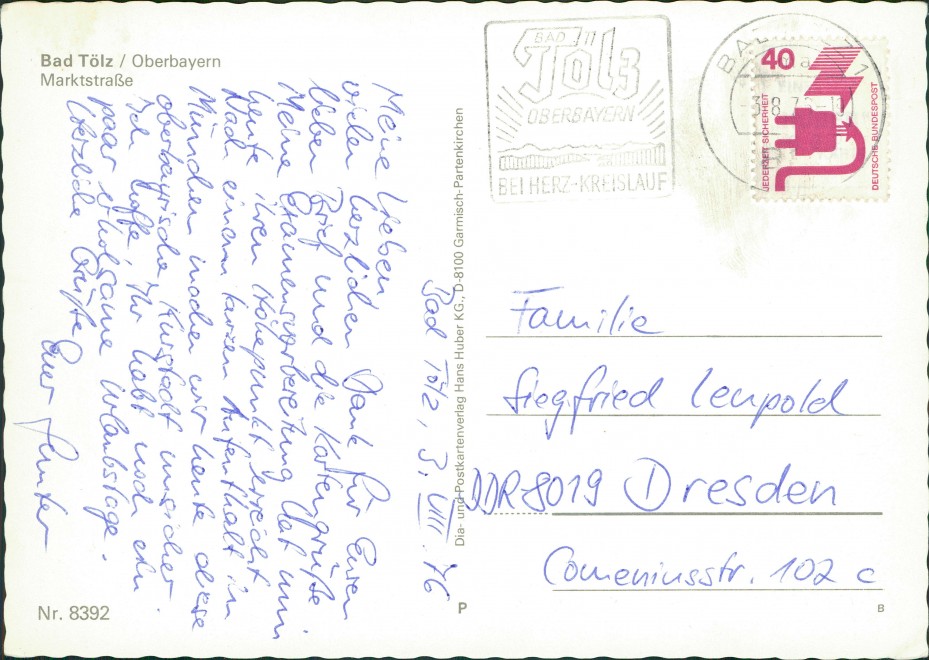 Bad Tölz / Oberbayern
Marktstraße
BAD Tölz
OBERBAYERN
BEI HERZ-KREISLAUF
40
JEDERZEIT SICHERHEIT
DEUTSCHE BUNDESPOST
Bad Tölz, 3. VIII. 76
Meine Lieben
vielen herzlichen Dank für Euren
lieben Brief und die Kartengrüße
Meine Examensvorbereitung hat nun
heute ihren Höhepunkt erreicht.
Nach einem kurzen Aufenthalt in
München machen wir heute diese
oberbayrische Kurstadt unsicher.
Ich hoffe, Ihr habt noch ein
paar erholsame Urlaubstage.
Herzliche Grüße
Euer Gunter
Dia- und Postkartenverlag Hans Huber KG., D-8100 Garmisch-Partenkirchen
Familie
Siegfried Leupold
DDR 8019 Dresden
Comeniusstr. 102 c
Nr. 8392
P
B